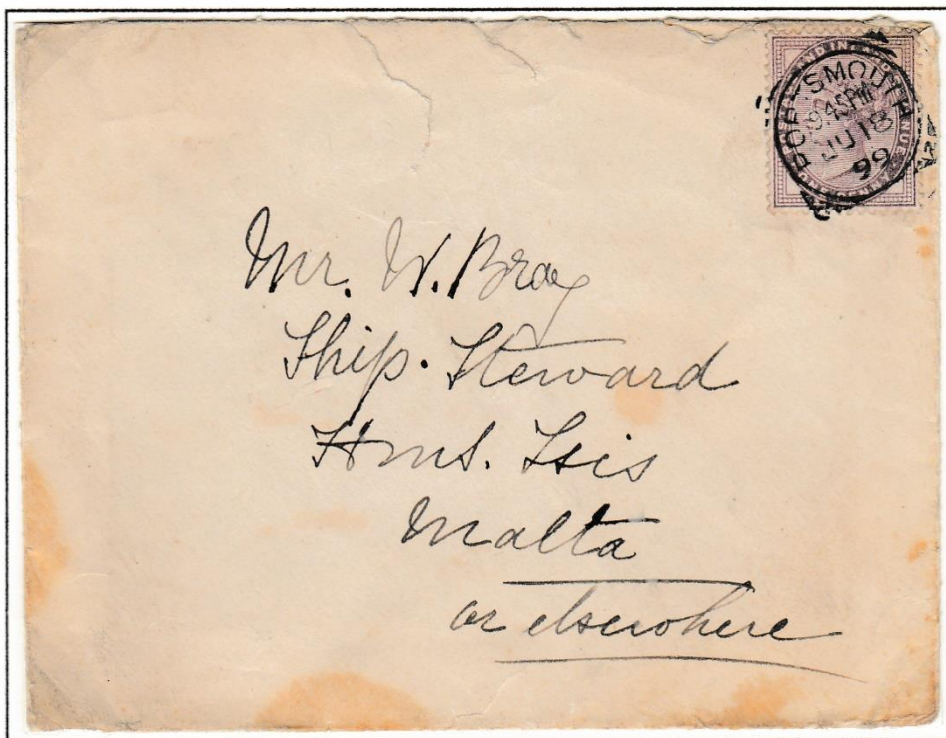 PORTSMOUTH
9.45PM
JU 18
99
Mr. W. Bray
Ship. Steward
Hms. Isis
Malta
or elsewhere